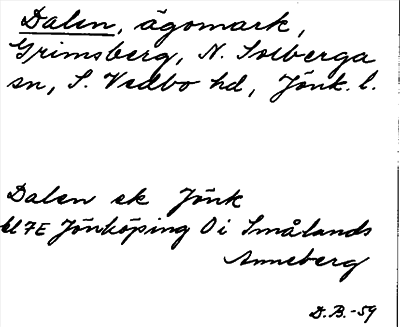 Dalen, ägomark,
Grimsberg, N. Solberga
sn, S. Vedbo hd, Jönk. l.
Dalen ek Jönk
bl 7E Jönköping O i Smålands
Anneberg
D.B.-59